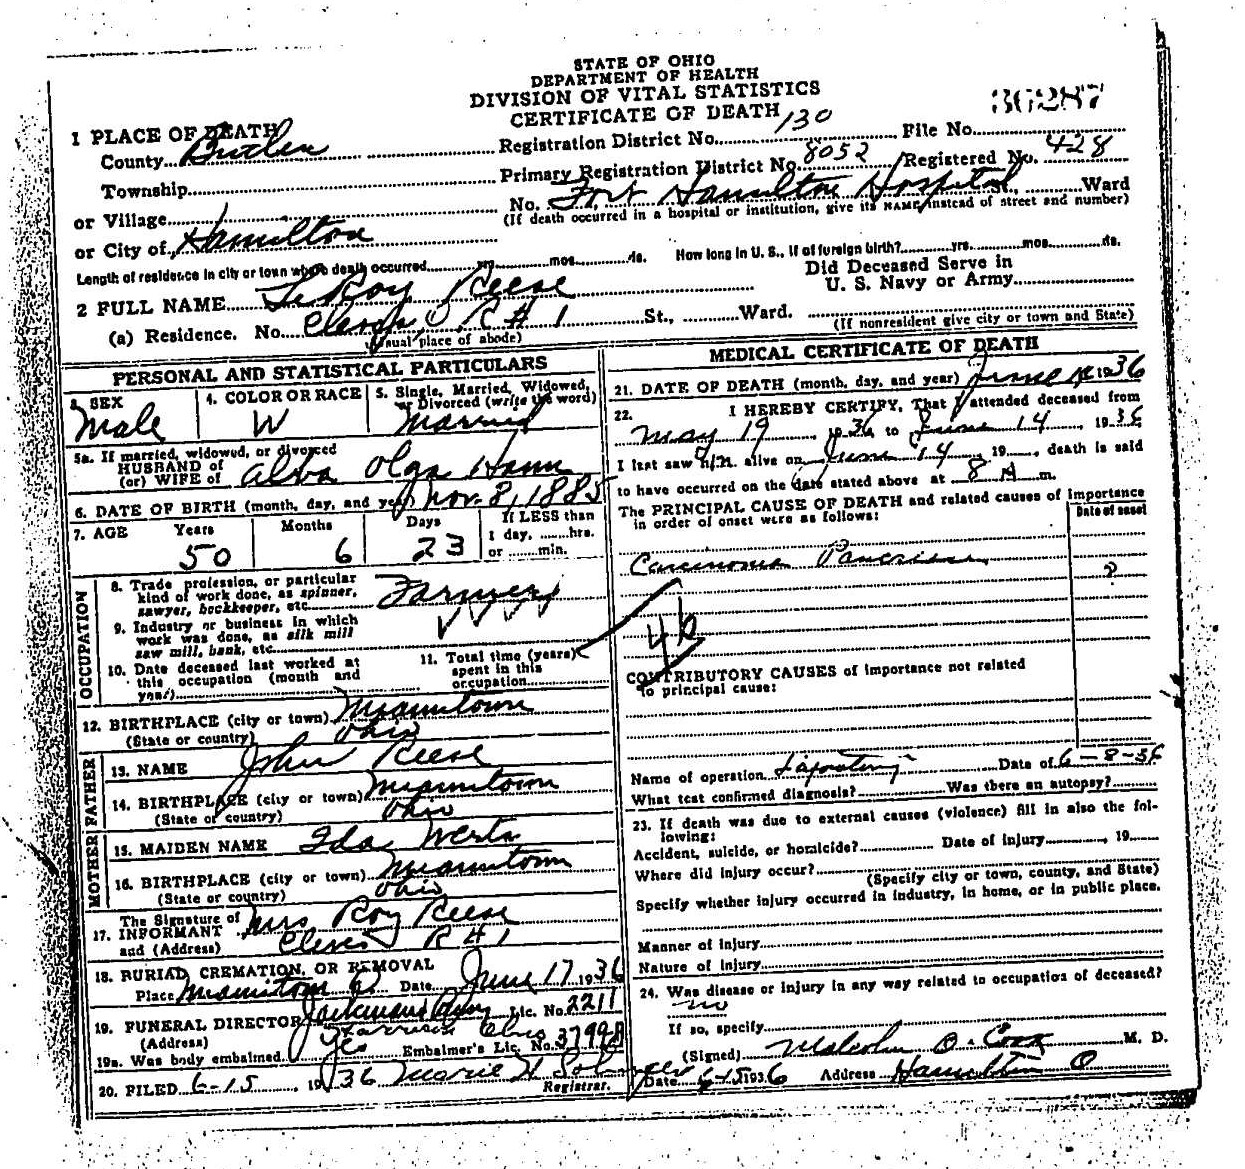 STATE OF OHIO
DEPARTMENT OF HEALTH
DIVISION OF VITAL STATISTICS
CERTIFICATE OF DEATH
36287
1 PLACE OF DEATH
County Butler Registration District No. 130 File No.
Township Primary Registration District No. 8052 Registered No. 428
or Village No. Fort Hamilton Hospital St., Ward
(If death occurred in a hospital or institution, give its NAME instead of street and number)
or City of Hamilton
Length of residence in city or town where death occurred yrs. mos. ds. How long in U. S., if of foreign birth? yrs. mos. ds.
2 FULL NAME LeRoy Reese Did Deceased Serve in U. S. Navy or Army
(a) Residence. No. Cleves, O R # 1 St., Ward.
(Usual place of abode) (If nonresident give city or town and State)
PERSONAL AND STATISTICAL PARTICULARS
3. SEX Male
4. COLOR OR RACE W
5. Single, Married, Widowed, or Divorced (write the word) Married
5a. If married, widowed, or divorced
HUSBAND of
(or) WIFE of Alva Olga Hann
6. DATE OF BIRTH (month, day, and year) Nov. 8, 1885
7. AGE Years Months Days If LESS than
1 day, hrs.
or min.
50 6 23
OCCUPATION
8. Trade profession, or particular
kind of work done, as spinner,
sawyer, bookkeeper, etc. Farmer
9. Industry or business in which
work was done, as silk mill
saw mill, bank, etc.
10. Date deceased last worked at
this occupation (month and
year)
11. Total time (years)
spent in this
occupation
12. BIRTHPLACE (city or town) Miamitown
(State or country) Ohio
FATHER
13. NAME John Reese
14. BIRTHPLACE (city or town) Miamitown
(State or country) Ohio
MOTHER
15. MAIDEN NAME Ida Werts
16. BIRTHPLACE (city or town) Miamitown
(State or country) Ohio
17. The Signature of
INFORMANT Mrs Roy Reese
and (Address) Cleves R # 1
18. BURIAL, CREMATION, OR REMOVAL
Place Miamitown Date June 17, 1936
19. FUNERAL DIRECTOR Lic. No. 2211
(Address) Harrison Ohio
19a. Was body embalmed Yes Embalmer's Lic. No. 3799B
20. FILED 6-15, 1936 Marie H
Registrar.
MEDICAL CERTIFICATE OF DEATH
21. DATE OF DEATH (month, day, and year) June 14 1936
22. I HEREBY CERTIFY, That I attended deceased from
May 19, 1936, to June 14, 1936
I last saw him alive on June 14, 19, death is said
to have occurred on the date stated above at 8 A m.
The PRINCIPAL CAUSE OF DEATH and related causes of importance
in order of onset were as follows:
Date of onset
Carcinoma Pancreas ?
46
CONTRIBUTORY CAUSES of importance not related
to principal cause:
Name of operation Laparotomy Date of 6-8-36
What test confirmed diagnosis? Was there an autopsy?
23. If death was due to external causes (violence) fill in also the fol-
lowing:
Accident, suicide, or homicide? Date of injury, 19
Where did injury occur?
(Specify city or town, county, and State)
Specify whether injury occurred in industry, in home, or in public place.
Manner of injury
Nature of injury
24. Was disease or injury in any way related to occupation of deceased?
no
If so, specify
(Signed) Malcolm O. Cook M. D.
Date 6-15 1936 Address Hamilton O